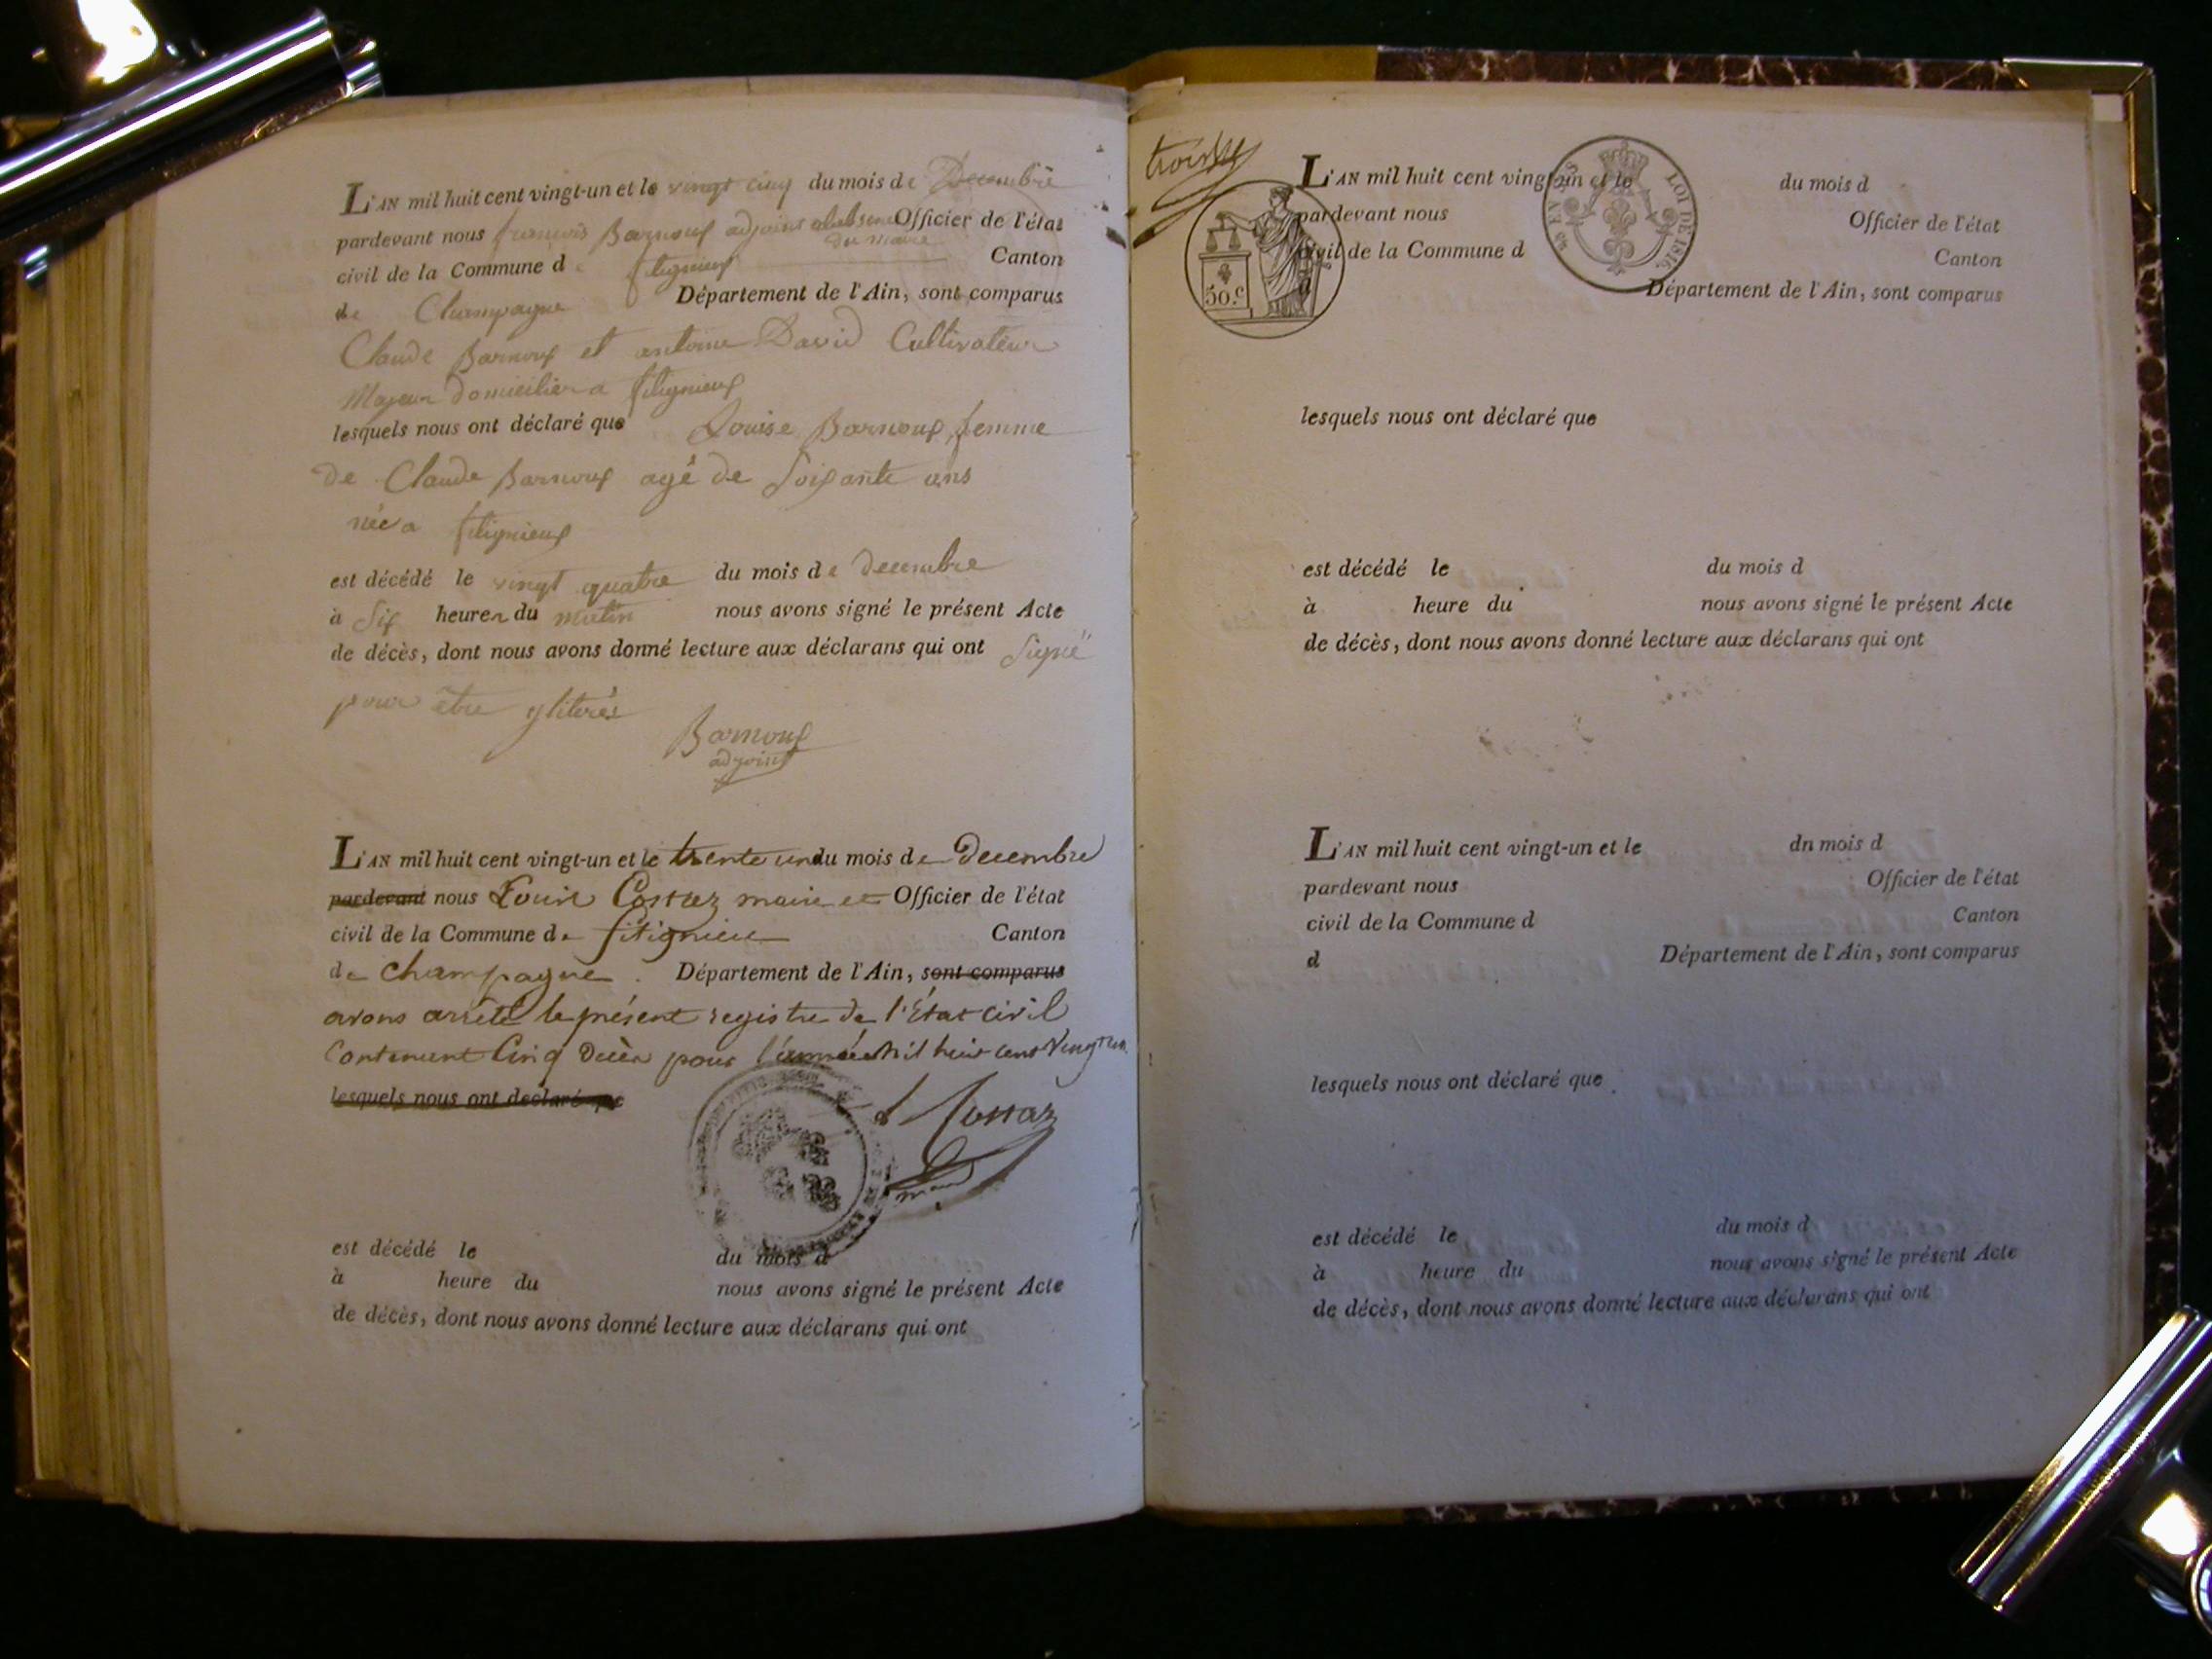 L'AN mil huit cent vingt-un et le vingt cinq du mois de Decembre
pardevant nous francois Barnoux adjoint Officier de l'état
du maire
civil de la Commune d fitignieux Canton
de Champagne Département de l'Ain, sont comparus
Claude Barnoux et antoine David Cultivateur
Majeur domicilier a fitignieux
lesquels nous ont déclaré que Louise Barnoux femme
de Claude Barnoux agé de Soixante ans
née a fitignieux
est décédé le vingt quatre du mois de decembre
à Six heures du matin nous avons signé le présent Acte
de décès, dont nous avons donné lecture aux déclarans qui ont Signé
pour être
Barnoux
adjoint
L'AN mil huit cent vingt-un et le trente un du mois de Decembre
pardevant nous Louis Costaz maire et Officier de l'état
civil de la Commune de fitignieu Canton
de champagne. Département de l'Ain, sont comparus
avons arrêté le présent registre de l'État civil
Contenant Cinq Décès pour l'année Mil huit cent Vingt un.
lesquels nous ont declaré que
Costaz
maire
est décédé le du mois d
à heure du nous avons signé le présent Acte
de décès, dont nous avons donné lecture aux déclarans qui ont
trois
L'AN mil huit cent vingt-un et le du mois d
pardevant nous Officier de l'état
civil de la Commune d Canton
d Département de l'Ain, sont comparus
50.c
LOI DE 1816.
lesquels nous ont déclaré que
est décédé le du mois d
à heure du nous avons signé le présent Acte
de décès, dont nous avons donné lecture aux déclarans qui ont
L'AN mil huit cent vingt-un et le dn mois d
pardevant nous Officier de l'état
civil de la Commune d Canton
d Département de l'Ain, sont comparus
lesquels nous ont déclaré que
est décédé le du mois d
à heure du nous avons signé le présent Acte
de décès, dont nous avons donné lecture aux déclarans qui ont